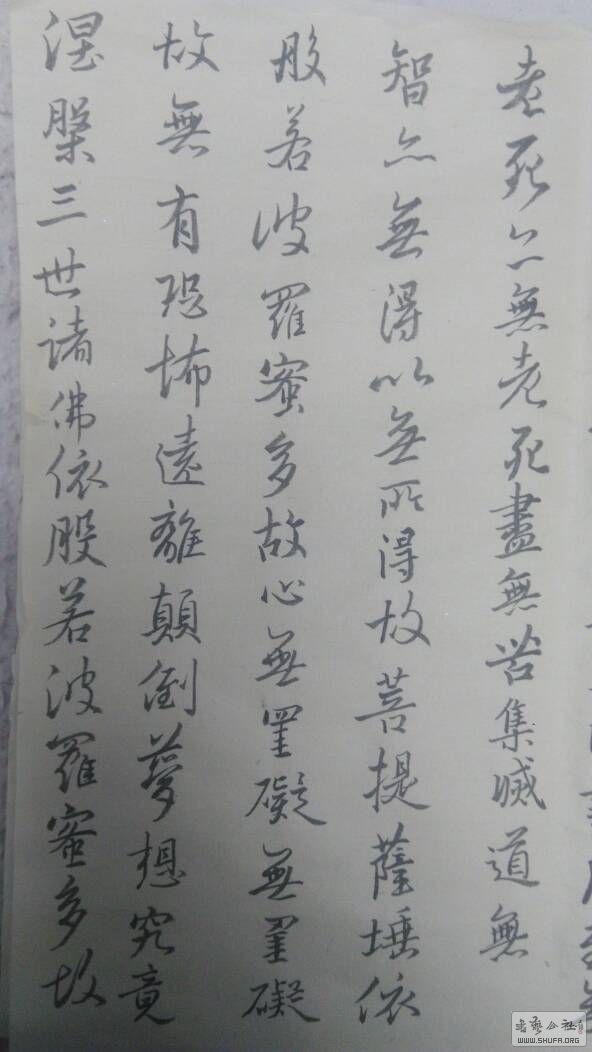 老死亦無老死盡無苦集滅道無
智亦無得以無所得故菩提薩埵依
般若波羅蜜多故心無罣礙無罣礙
故無有恐怖遠離顛倒夢想究竟
涅槃三世諸佛依般若波羅蜜多故
WWW.SHUFA.ORG